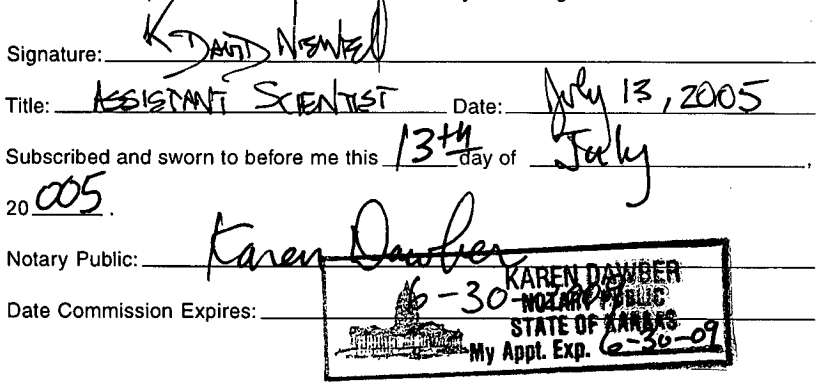 Signature: K DAVID NEWELL
Title: ASSISTANT SCIENTIST Date: July 13, 2005
Subscribed and sworn to before me this 13th day of July,
20 005.
Notary Public: Karen Dawber
Date Commission Expires: 6-30-
KAREN DAWBER
NOTARY PUBLIC
STATE OF KANSAS
My Appt. Exp. 6-30-09